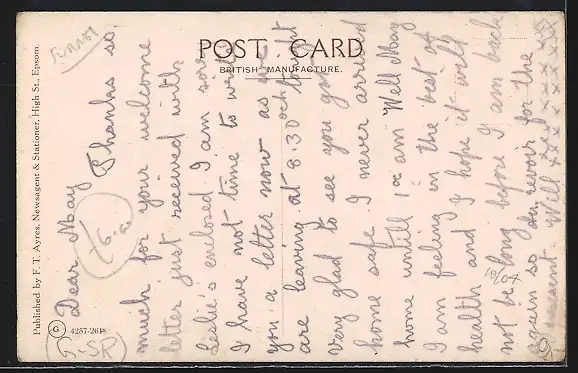 POST CARD
BRITISH MANUFACTURE.
Published by F. T. Ayres, Newsagent & Stationer, High St., Epsom.
G 4257-26
G.-SR
Dear May
Thanks so
much for your welcome
letter just received with
Leslie's enclosed I am sorry
I have not time to write
you a letter now as we
are leaving at 8.30 och tonight
very glad to see you got
home safe. I never arrived
home untill 1 am Well May
I am feeling in the best of
health and I hope it will
not be long before I am back
again so Au revoir for the
present. Will xxxxxxx
19/04